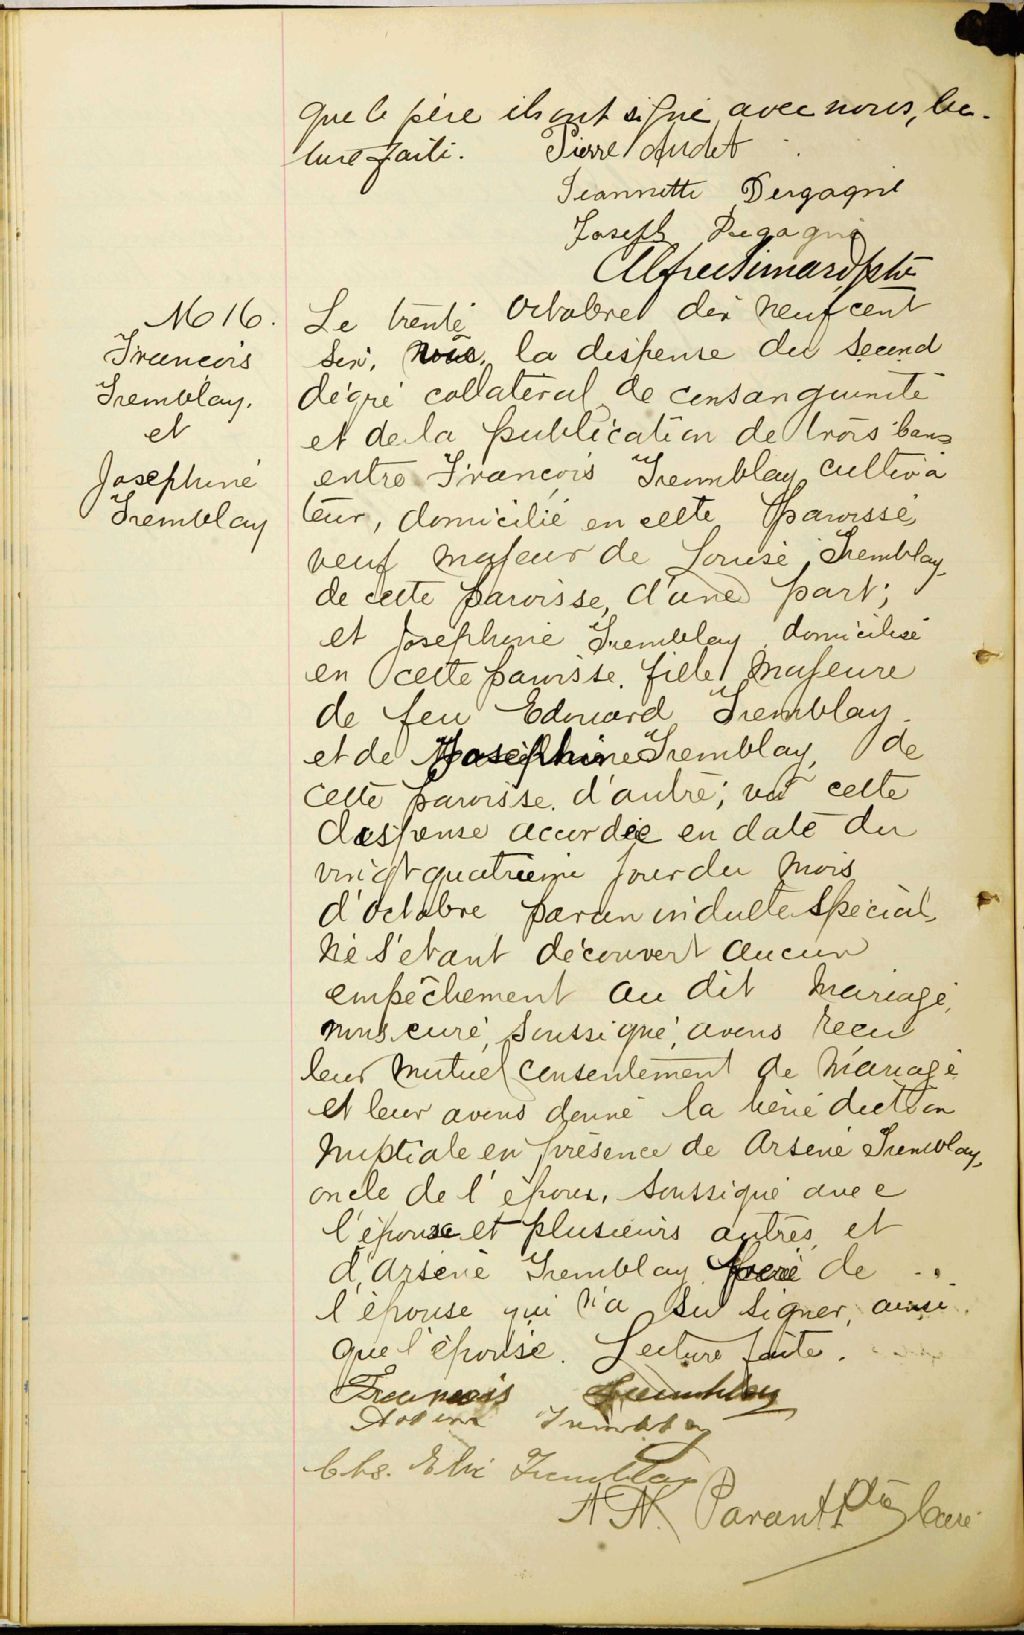 que le père ils ont signé avec nous, lec-
ture faite. Pierre Audet
Jeannette Dergagné
Joseph Degagné
Alfred Simard ptre
M 16.
François
Tremblay.
et
Josephine
Tremblay
Le trente Octobre dix neuf cent
six, la dispense du second
dégré collatéral de consanguinité
et de la publication de trois bans
entre François Tremblay cultiva
teur, domicilié en cette paroisse,
veuf majeur de Louise Tremblay
de cette paroisse, d'une part;
et Josephine Tremblay domiciliée
en cette paroisse, fille majeure
de feu Edouard Tremblay
et de Josephine Tremblay, de
cette paroisse, d'autre; vu cette
dispense accordée en date du
vingt quatrième jour du mois
d'octobre par un indulte spécial,
ne s'étant découvert aucun
empêchement au dit mariage,
nous curé, soussigné, avons reçu
leur mutuel consentement de mariage
et leur avons donné la bénédiction
nuptiale en présence de Arsène Tremblay,
oncle de l'époux, soussigné avec
l'époux et plusieurs autres, et
d'Arsène Tremblay frère de
l'épouse qui n'a su signer, ainsi
que l'épouse. Lecture faite.
François Tremblay
Tremblay
Chs. Elie Tremblay
A N. Parant Ptre Curé